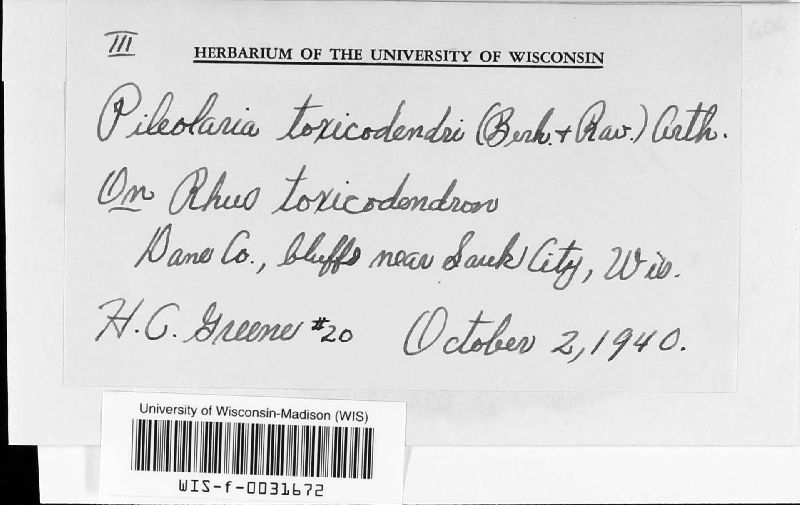 III
HERBARIUM OF THE UNIVERSITY OF WISCONSIN
Pileolaria toxicodendri (Berk. + Rav.) Arth.
On Rhus toxicodendron
Dane Co., bluffs near Sauk City, Wis.
H. C. Greene #20 October 2, 1940.
University of Wisconsin-Madison (WIS)
WIS-f-0031672